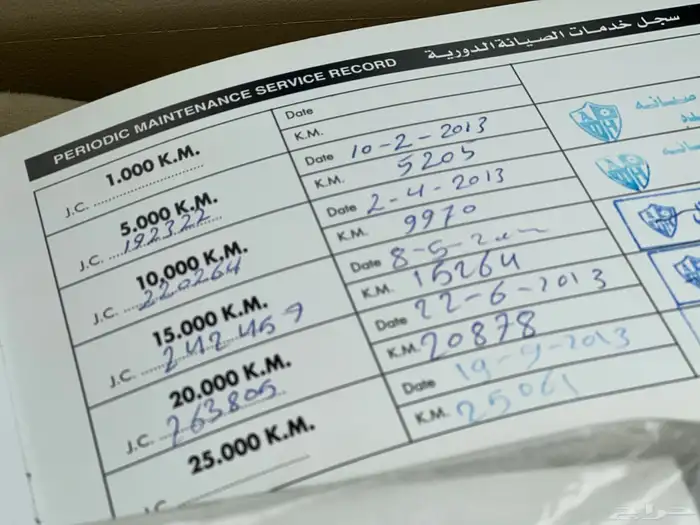 PERIODIC MAINTENANCE SERVICE RECORD سجل خدمات الصيانة الدورية
1.000 K.M.
J.C.
Date
K.M.
5.000 K.M.
J.C. 192322
Date 10-2-2013
K.M. 5205
10.000 K.M.
J.C. 220264
Date 2-4-2013
K.M. 9970
15.000 K.M.
J.C. 242459
Date 8-5-
K.M. 15264
20.000 K.M.
J.C. 263805
Date 22-6-2013
K.M. 20878
25.000 K.M.
J.C.
Date 19-9-2013
K.M. 25061
حراج